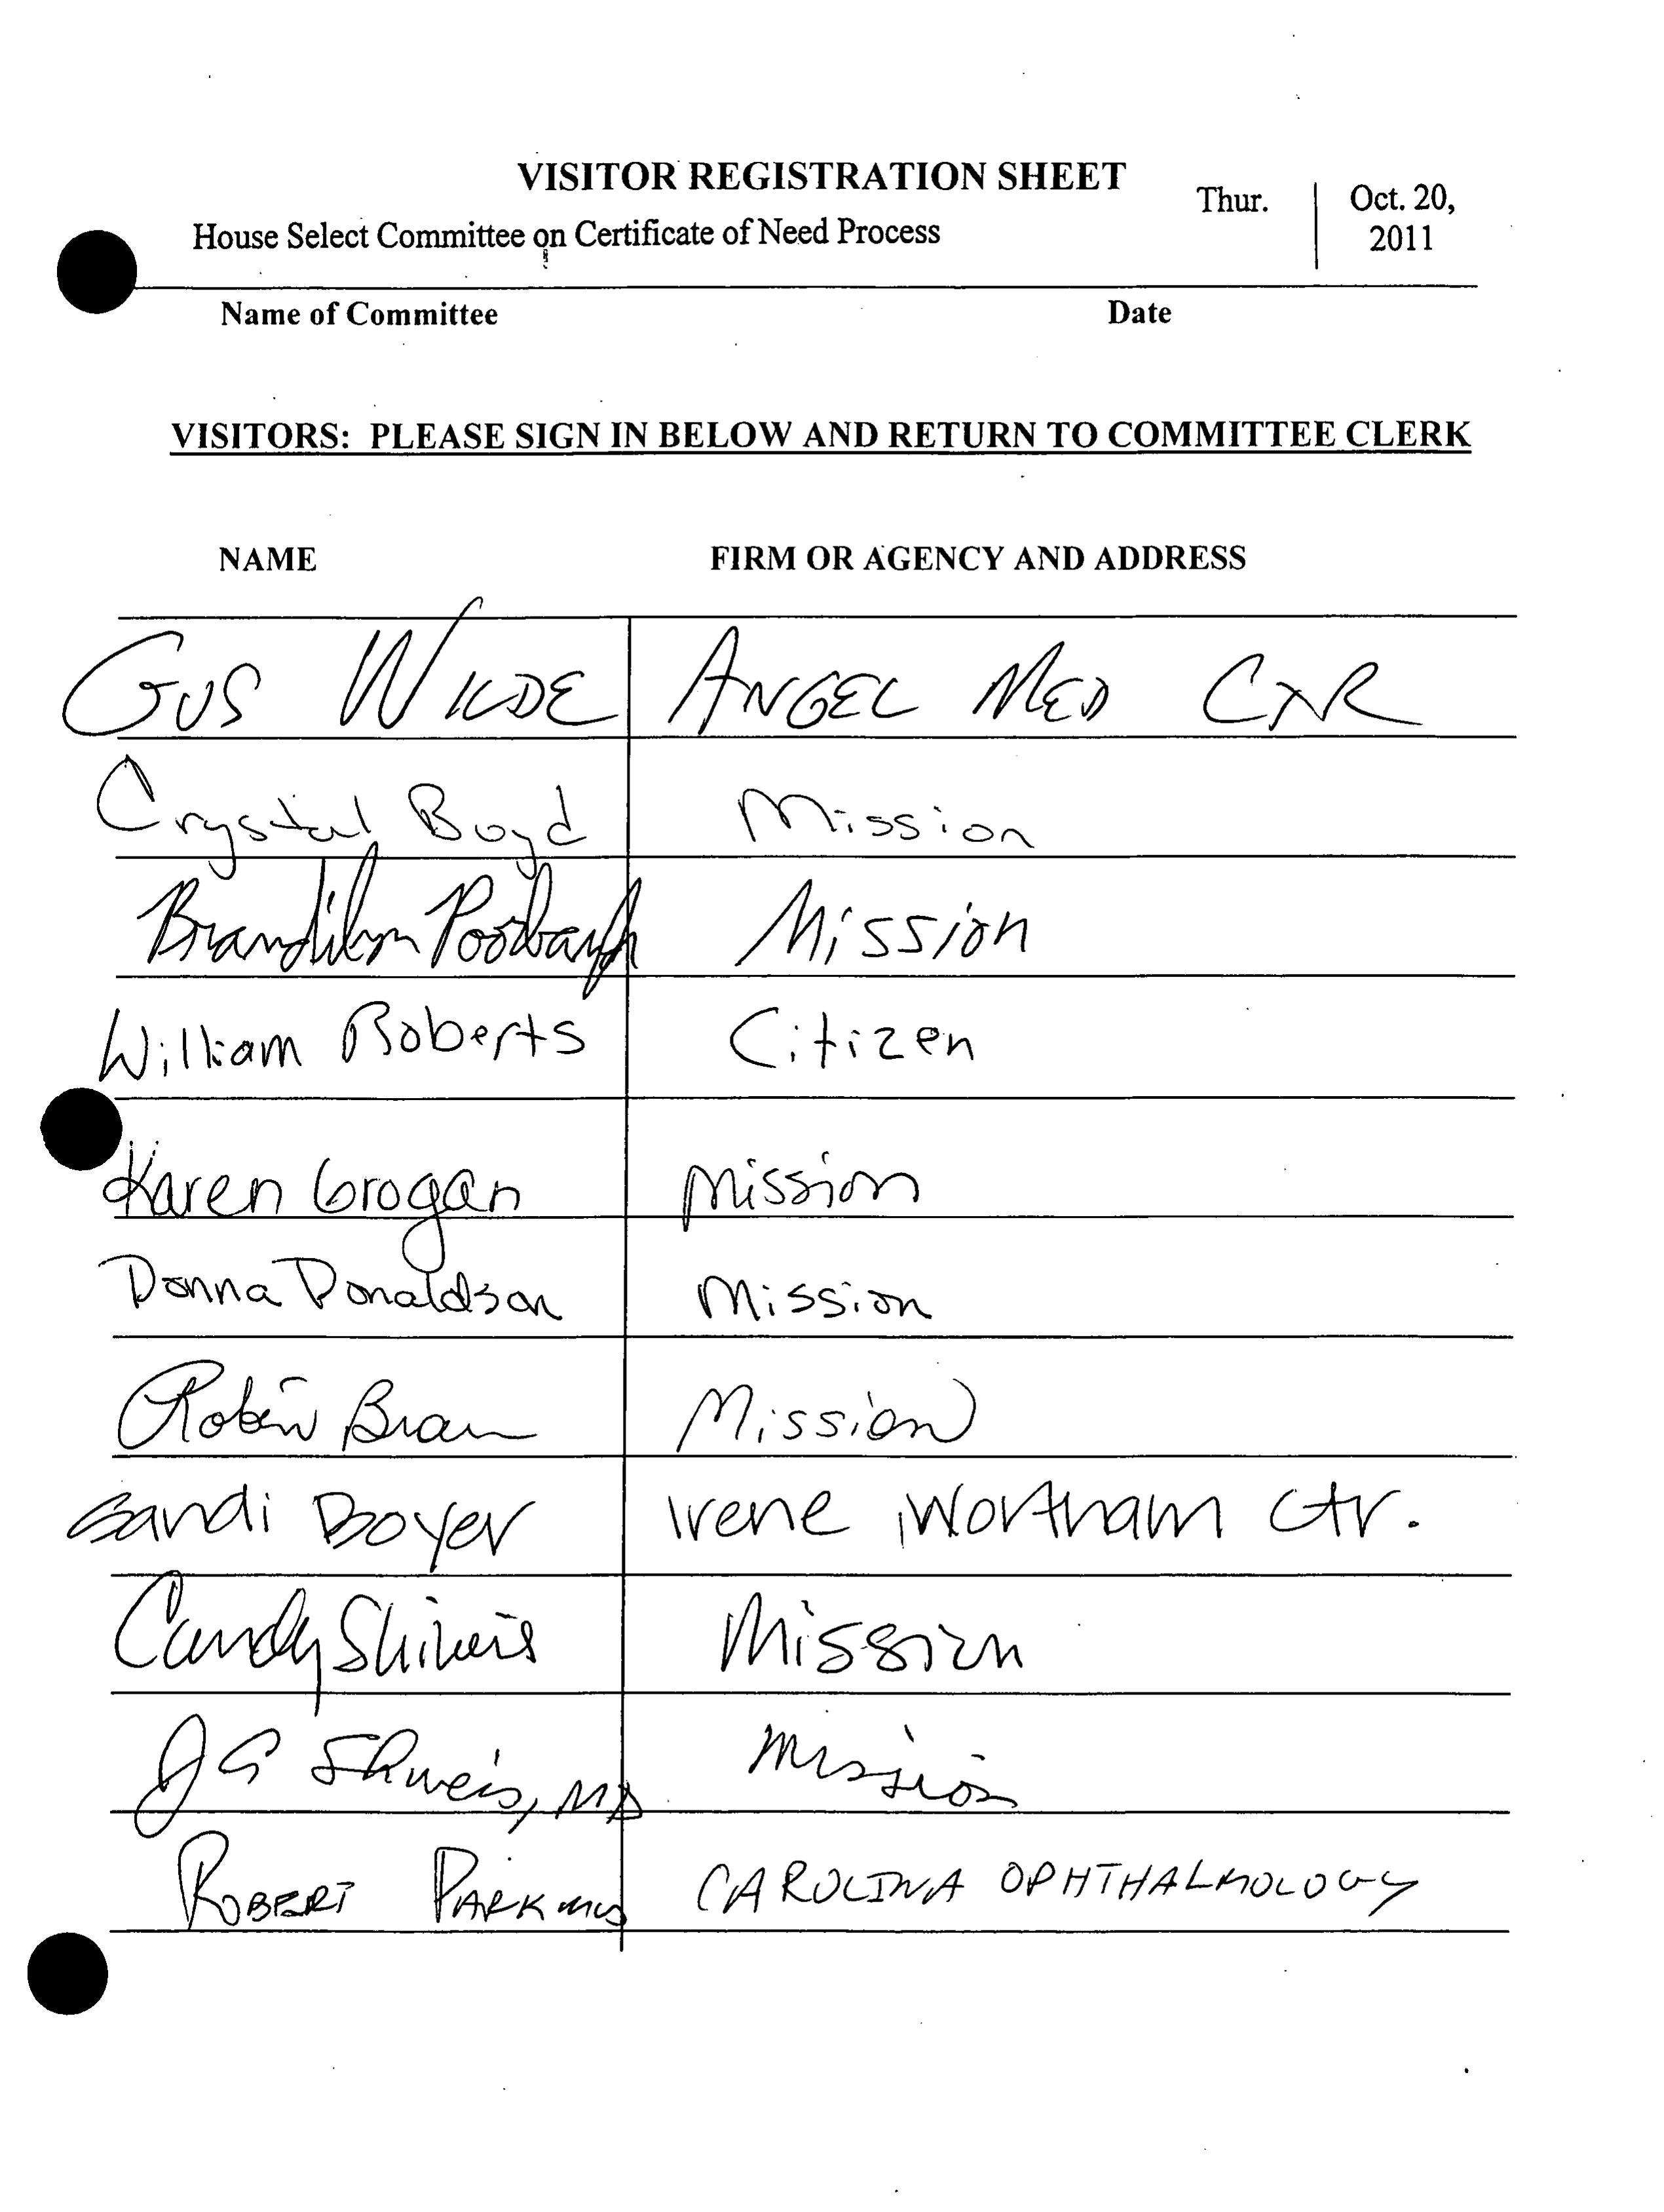 VISITOR REGISTRATION SHEET
Thur. Oct. 20,
2011
House Select Committee on Certificate of Need Process
Name of Committee Date
VISITORS: PLEASE SIGN IN BELOW AND RETURN TO COMMITTEE CLERK
NAME FIRM OR AGENCY AND ADDRESS
GUS WILDE ANGEL MED CTR
Crystal Boyd Mission
Brandilyn Mission
William Roberts Citizen
Karen Grogan Mission
Donna Donaldson Mission
Robin Mission
Sandi Boyer Irene Wortham Ctr.
Candy Mission
JG MD Mission
ROBERT PARKINS CAROLINA OPHTHALMOLOGY